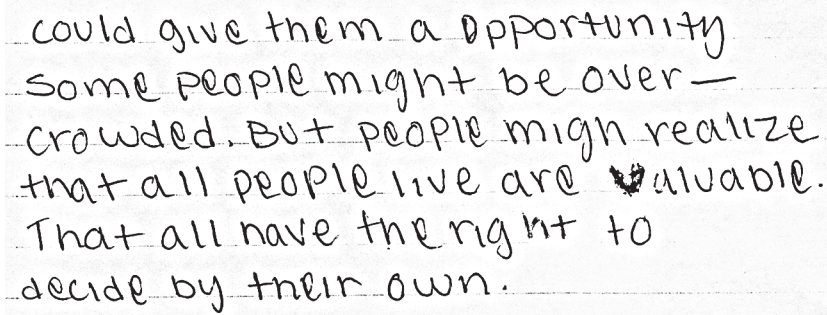 could give them a opportunity
some people might be over-
crowded. But people migh realize
that all people live are valuable.
That all have the right to
decide by their own.